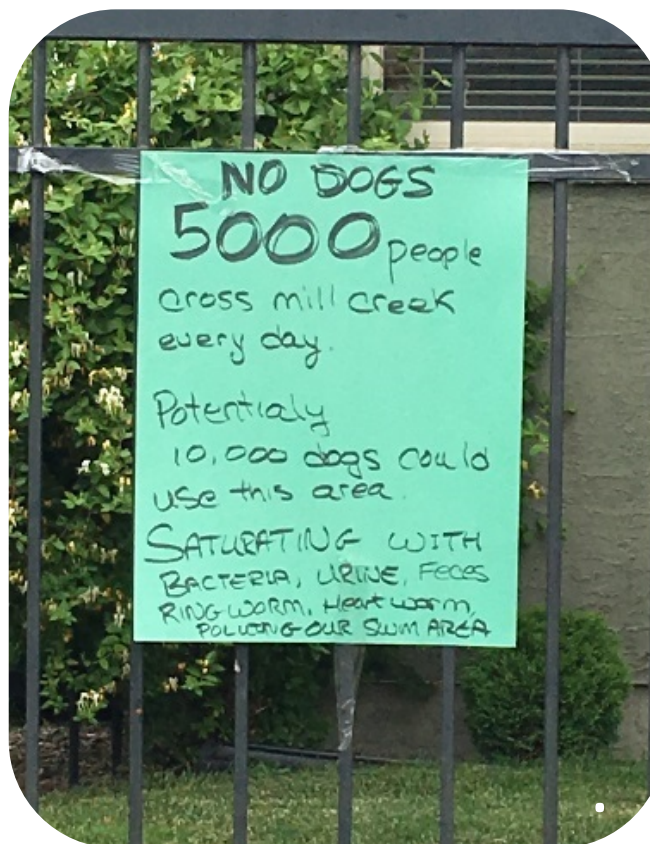 NO DOGS
5000 people
cross mill creek
every day.
Potentialy
10,000 dogs could
use this area.
SATURATING WITH
BACTERIA, URINE, Feces
RING WORM, Heart worm,
POLLUTING OUR SWIM AREA